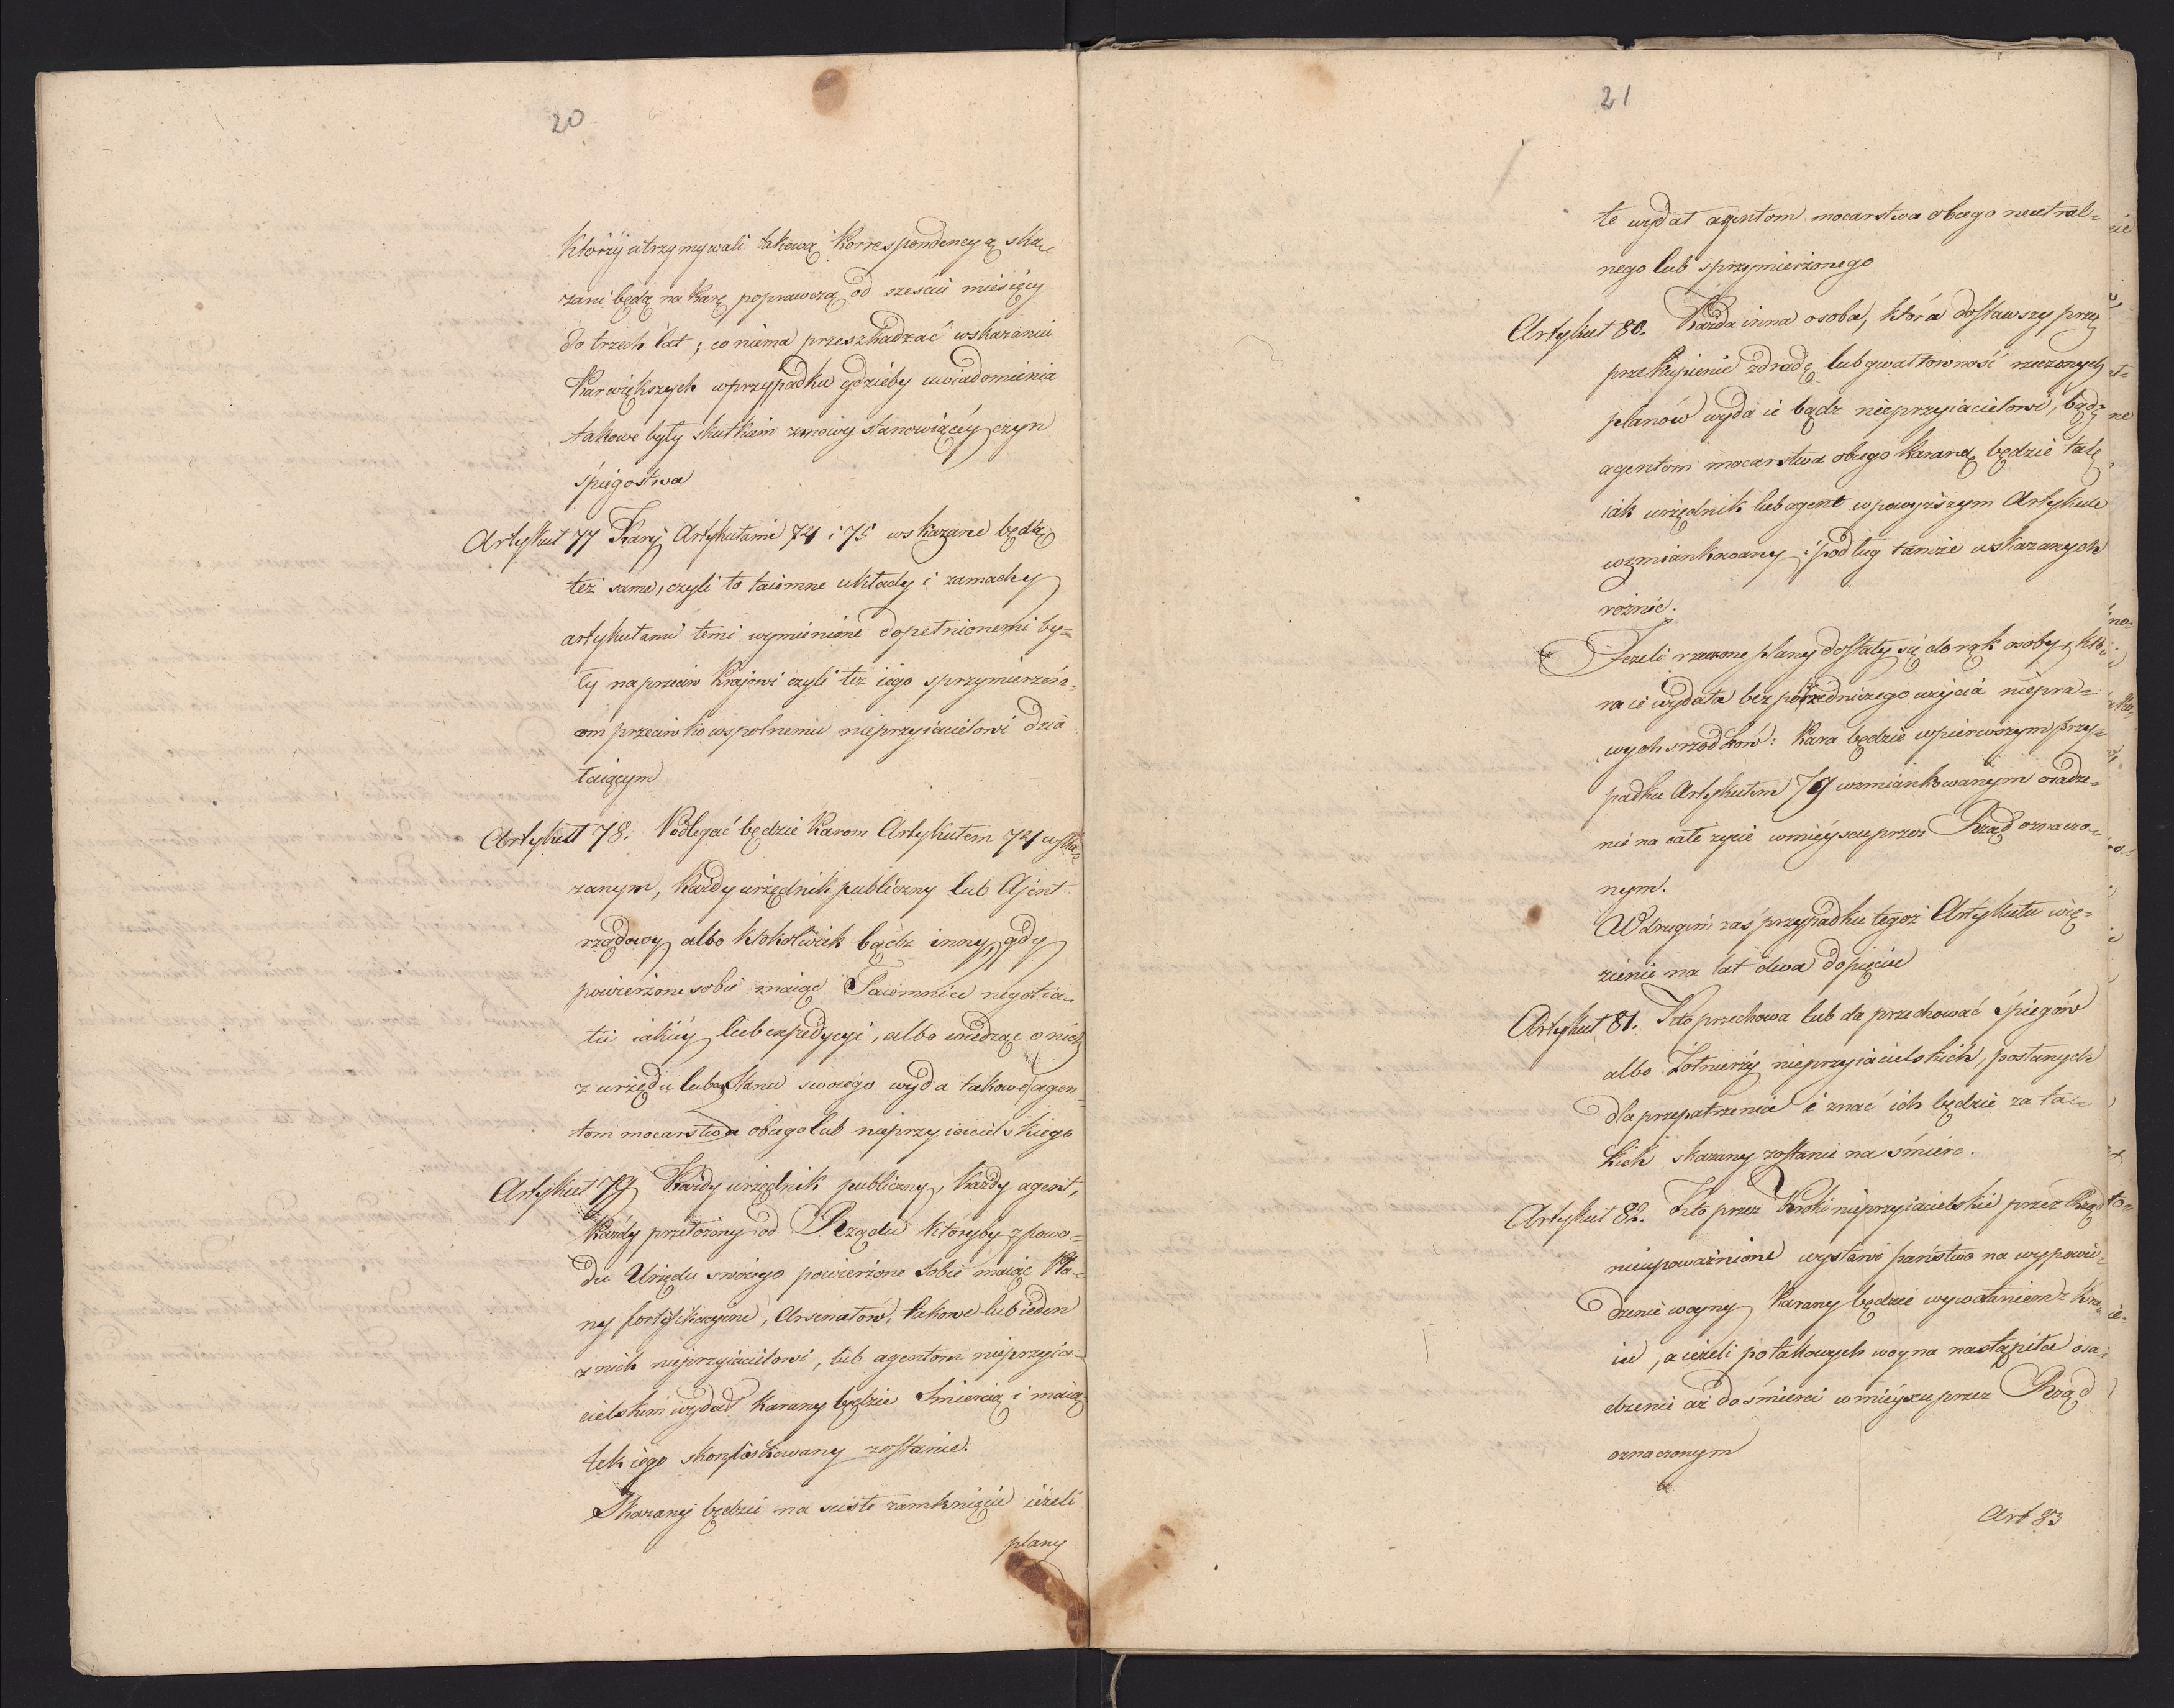 20
którzy utrzymywali takową Korrespondencyą ska-
zani będą na karę poprawczą od sześciu miesięcy
do trzech lat; co niema przeszkadzać wskazaniu
Kar większych w przypadku gdzieby uwiadomienia
takowe były skutkiem zmowy stanowiącéy czyn
śpiegostwa
Artykuł 77 Kary Artykułami 74 i 75 wskazane będą
też same, czyli to taiemne układy i zamachy
artykułami temi wymienione dopełnionemi by=
ły naprzeciw Krajowi czyli też iego sprzymierzeń-
com przeciwko wspolnemu nieprzyiacielowi dzia
łaiącym
Artykuł 78. Podlegać będzie Karom Artykułem 74 wska=
zanym, każdy urzędnik publiczny lub Ajent
rządowy albo ktokolwiek bądz inny, gdy
powierzone sobie maiąc Taiemnice negotia-
tii iakiéy lub expedycyi, albo wiedząc o nich
z urzędu lub Stanu swoiego wyda takowe agen=
tom mocarstwa obcego lub nieprzyiacielskiego
Artykuł 79 Każdy urzędnik publiczny, każdy agent,
każdy przełożony od Rządu któryby z powo=
du Urzędu swoiego powierzone sobie maiąc Pla=
ny fortyfikacyine, Arsenałów, takowe lub ieden
z nich nieprzyiacielowi, lub agentom nieprzyia-
cielskim wydał karany będzie Śmiercią i maią
tek iego skonfiskowany zostanie.
Skazany będzie na scisłe zamknięcie ieżeli
plany
21
te wydał agentom mocarstwa obcego neutral=
nego lub sprzymierzonego
Artykuł 80. Każda inna osoba, która dostawszy przez
przekupienie zdradę lub gwałtowność rzeczonych
planów wyda ie bądz nieprzyiacielowi, bądz
agentom mocarstwa obcego karaną będzie tak
iak urzędnik lub agent w powyższym Artykule
wzmiankowany i podług tamże wskazanych
rożnic.
Jeżeli rzeczone plany dostały się do rąk osoby, któ
ra ie wydała bez pośredniczego użycia niepra=
wych srzodków: Kara będzie w pierwszym przy=
padku Artykułem 79 wzmiankowanym osadze=
nie na całe życie w mieyscu przez Rząd oznaczo=
nym.
W drugim zaś przypadku tegoż Artykułu wię=
zienie na lat dwa do pięciu
Artykuł 81. Kto przechowa lub da przechować śpiegów
albo Żołnierzy nieprzyiacielskich, posłanych
dla przepatrzenia i znać ich będzie za ta=
kich skazany zostanie na śmierć.
Artykuł 82. Kto przez Kroki nieprzyiacielskie przez Rząd
nieupoważnione wystawi państwo na wypowie=
dzenie woyny karany będzie wywołaniem z Kra=
iu, a ieżeli po takowych woyna nastąpiła osa=
dzenie aż do śmierci w mieyscu przez Rząd
oznaczonym
Art 83